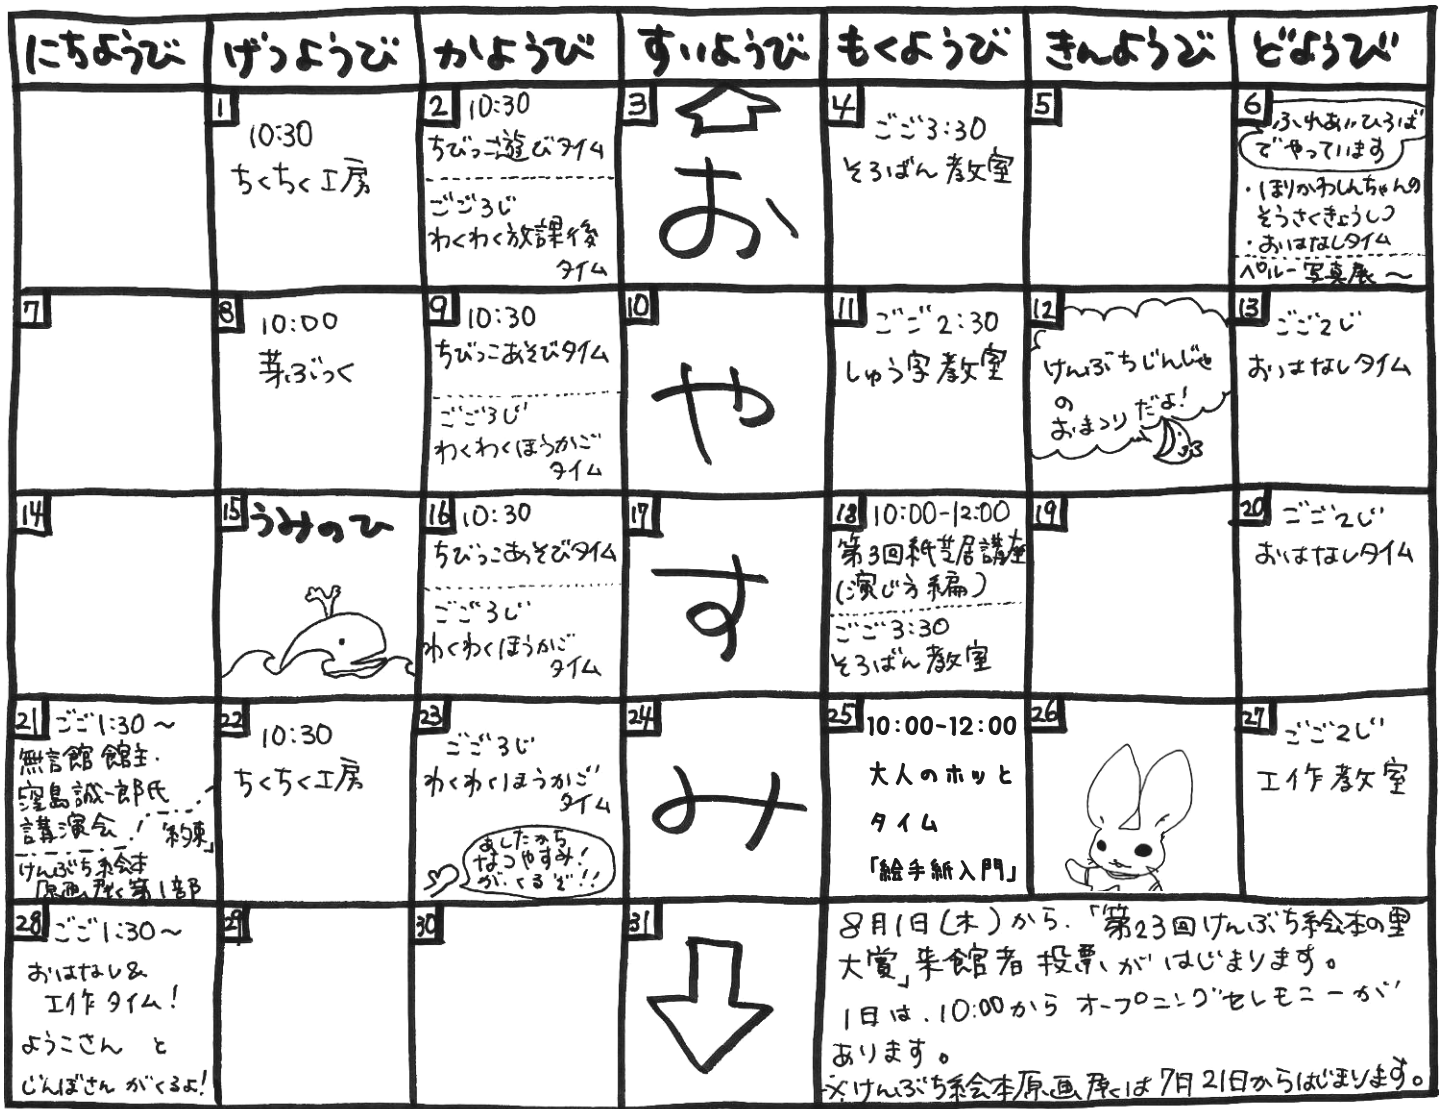 にちようび げつようび かようび すいようび もくようび きんようび どようび
1
10:30
ちくちく工房
2 10:30
ちびっこ遊びタイム
ごご3じ
わくわく放課後
タイム
3
お
4
ごご3:30
そろばん教室
5
6
ふれあいひろば
でやっています
・ほりかわしんちゃんの
そうさくきょうしつ
・おはなしタイム
ペルー写真展〜
7
8
10:00
芽ぶっく
9
10:30
ちびっこあそびタイム
ごご3じ
わくわくほうかご
タイム
10
や
11
ごご2:30
しゅう字教室
12
けんぶちじんじゃ
の
おまつりだよ!
13
ごご2じ
おはなしタイム
14
15 うみのひ
16 10:30
ちびっこあそびタイム
ごご3じ
わくわくほうかご
タイム
17
す
18 10:00-12:00
第3回紙芝居講座
(演じ方編)
ごご3:30
そろばん教室
19
20
ごご2じ
おはなしタイム
21 ごご1:30〜
無言館館主・
窪島誠一郎氏
講演会!「約束」
けんぶち絵本
原画展く第1部
22
10:30
ちくちく工房
23
ごご3じ
わくわくほうかご
タイム
あしたから
なつやすみ!
がくるぞ!!
24
み
25 10:00-12:00
大人のホッと
タイム
「絵手紙入門」
26
27
ごご2じ
工作教室
28 ごご1:30〜
おはなし&
工作タイム!
ようこさん と
じんぼさんがくるよ!
29
30
31
8月1日(木)から、「第23回けんぶち絵本の里
大賞」来館者投票がはじまります。
1日は、10:00からオープニングセレモニーが
あります。
※けんぶち絵本原画展は7月21日からはじまります。